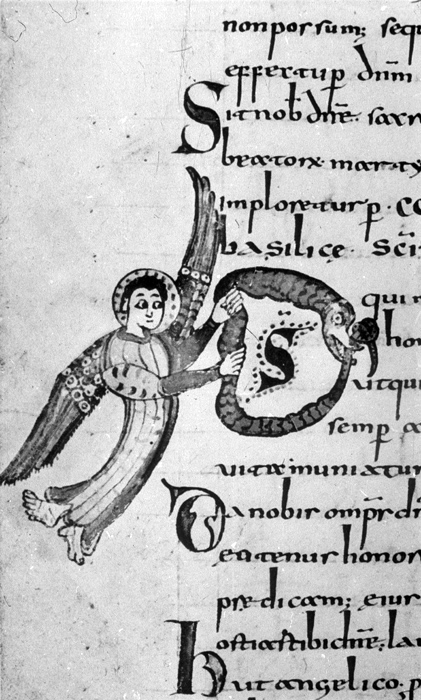 non possum; sequ
effectu p̄ dnm
Sit nob dn̄e· sacr
beator martẏ
imploretur p̄· co
basilicę· Sc̄i
DS qui n
hon
utqui
semp̄ a
uitæ muniatur
Da nobis omp̄s
eatenus honor
prędicam; eius
hostias tibi dn̄e· lau
ut angelico· p